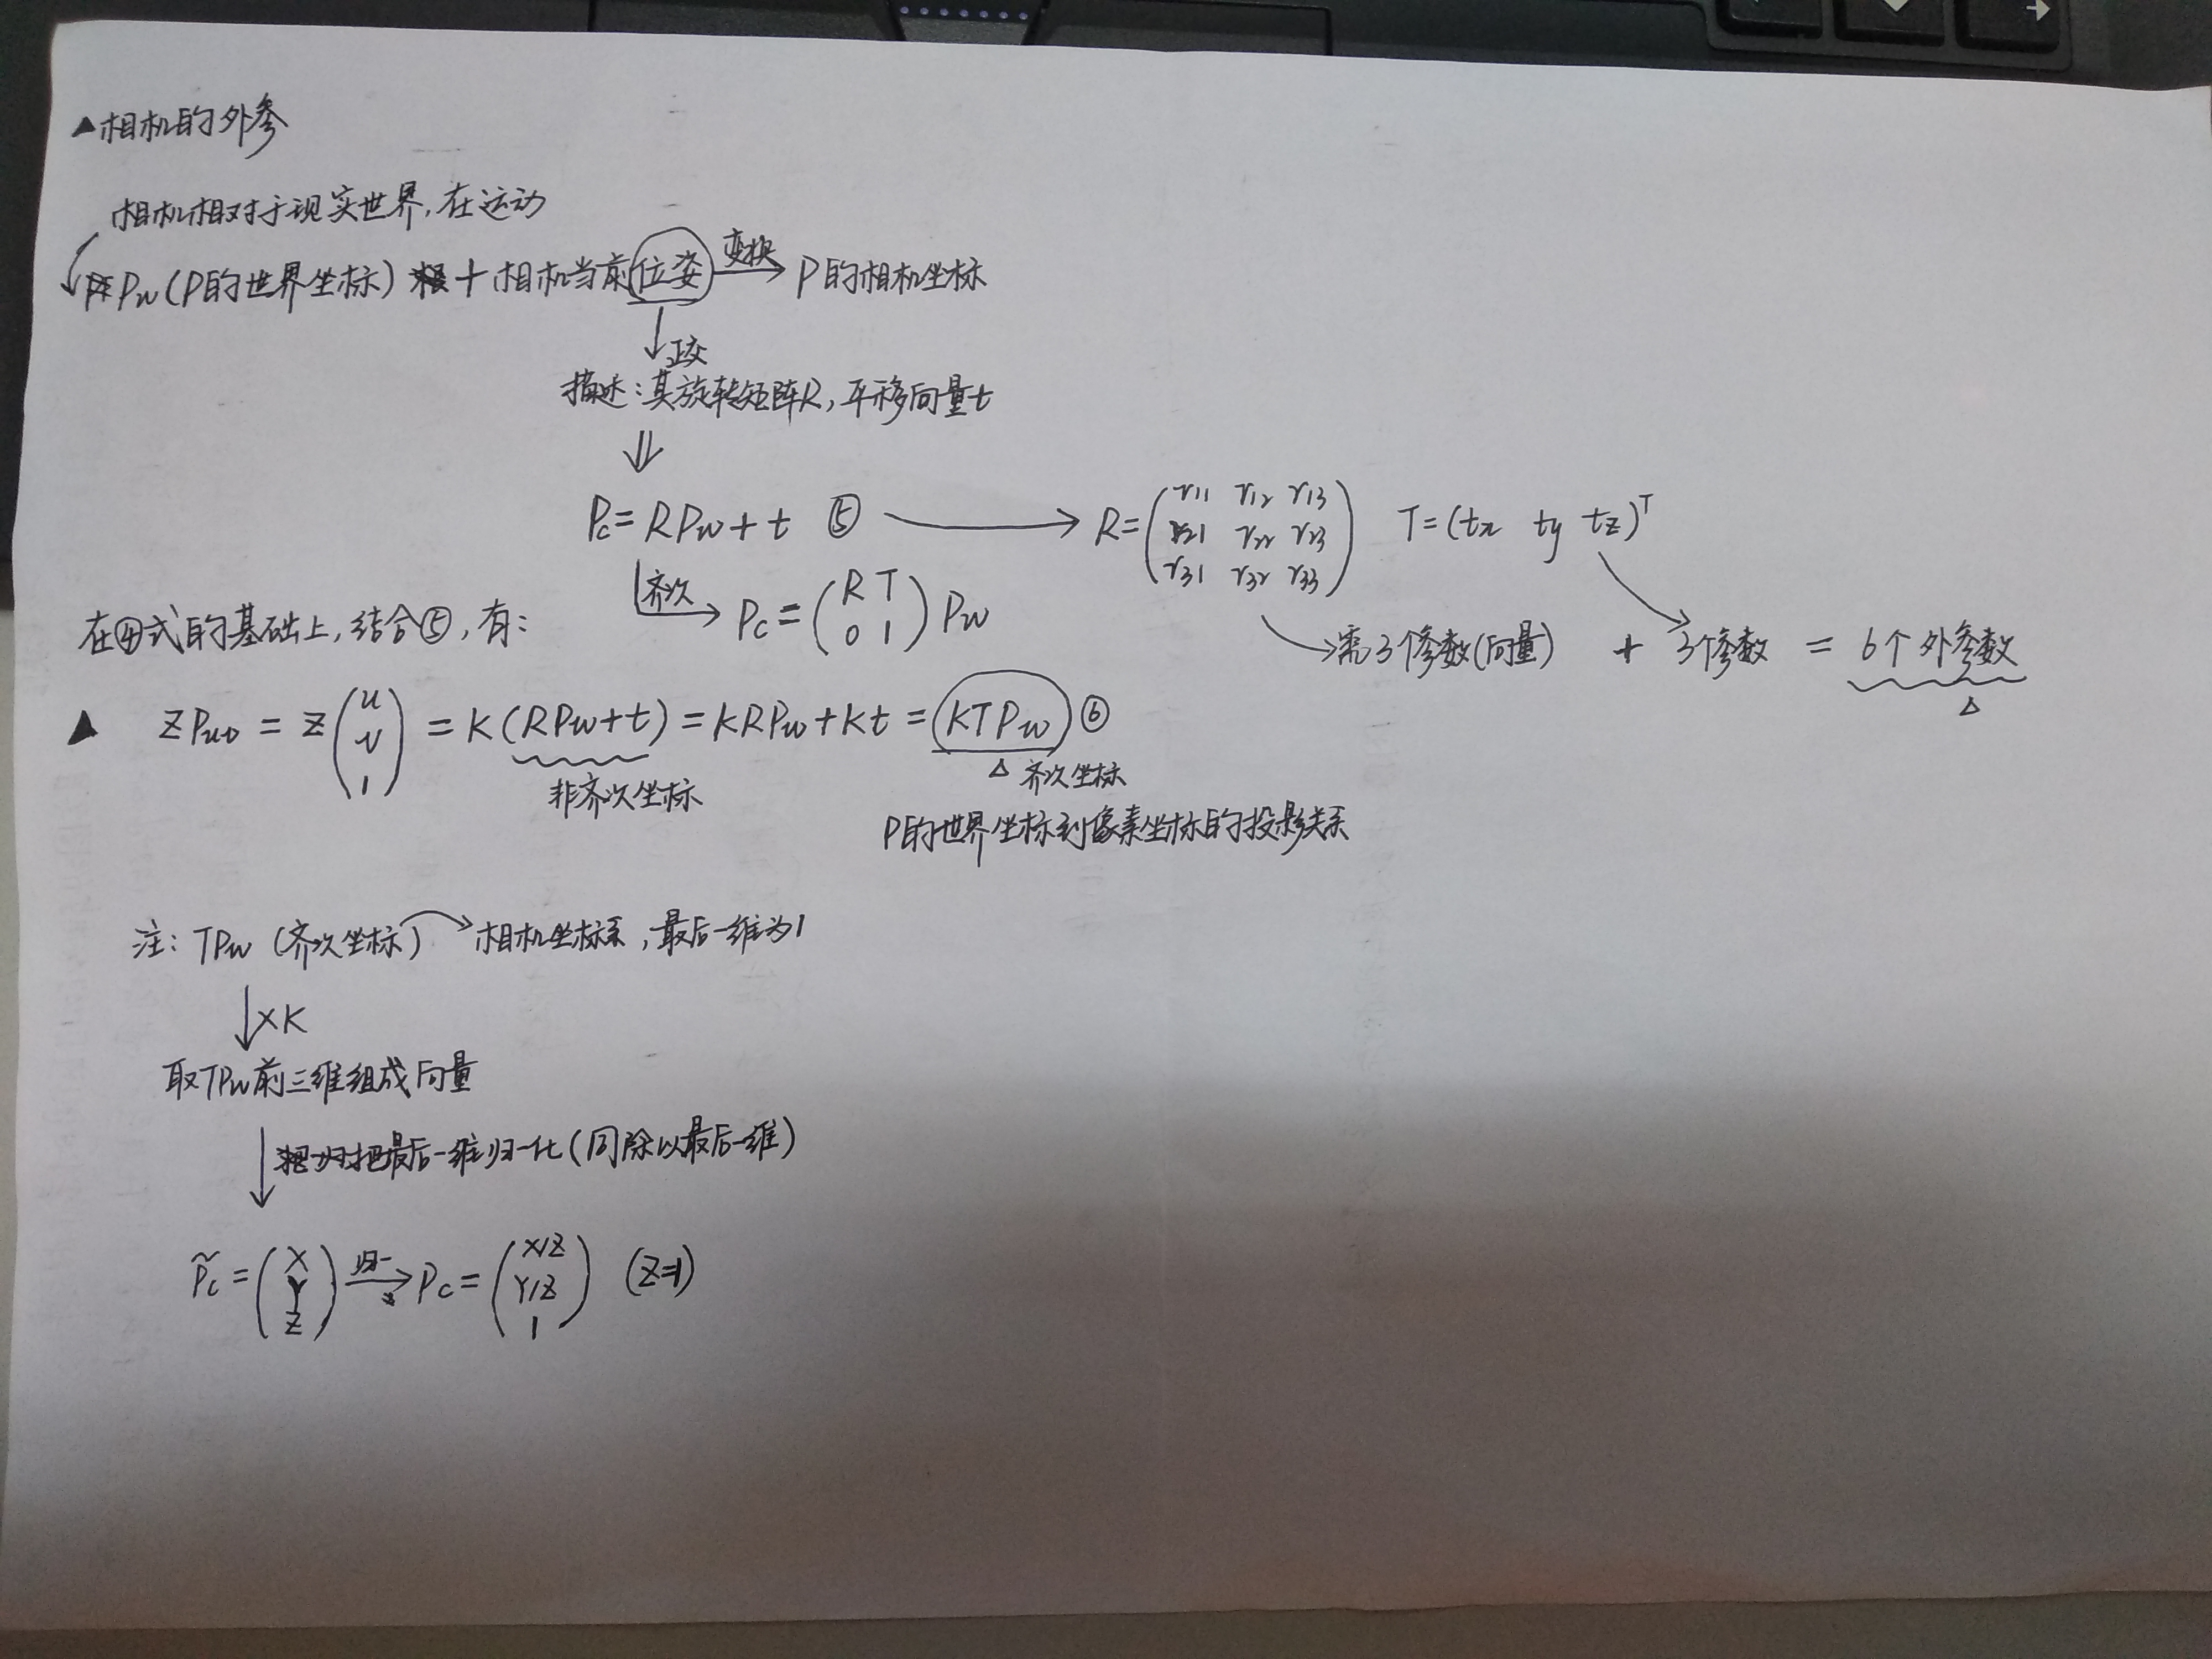 ▲相机的外参
相机相对于现实世界,在运动
Pw(P的世界坐标) + 相机当前位姿 变换→ P的相机坐标
↓正交
描述:其旋转矩阵R,平移向量t
⇓
Pc=RPw+t ⑤ → R=(r11 r12 r13
r21 r22 r23
r31 r32 r33) T=(tx ty tz)^T
齐次→ Pc=(R T
0 1)Pw
→需3个参数(向量) + 3个参数 = 6个外参数
△
在④式的基础上,结合⑤,有:
▲ ZPuv = Z(u
v
1) = K(RPw+t)=KRPw+Kt=KTPw ⑥
非齐次坐标
△ 齐次坐标
P的世界坐标到像素坐标的投影关系
注: TPw (齐次坐标)→相机坐标系,最后一维为1
↓×K
取TPw前三维组成向量
↓把最后一维归一化(同除以最后一维)
P̃c=(X
Y
Z) 归一→ Pc=(X/Z
Y/Z
1) (Z=1)